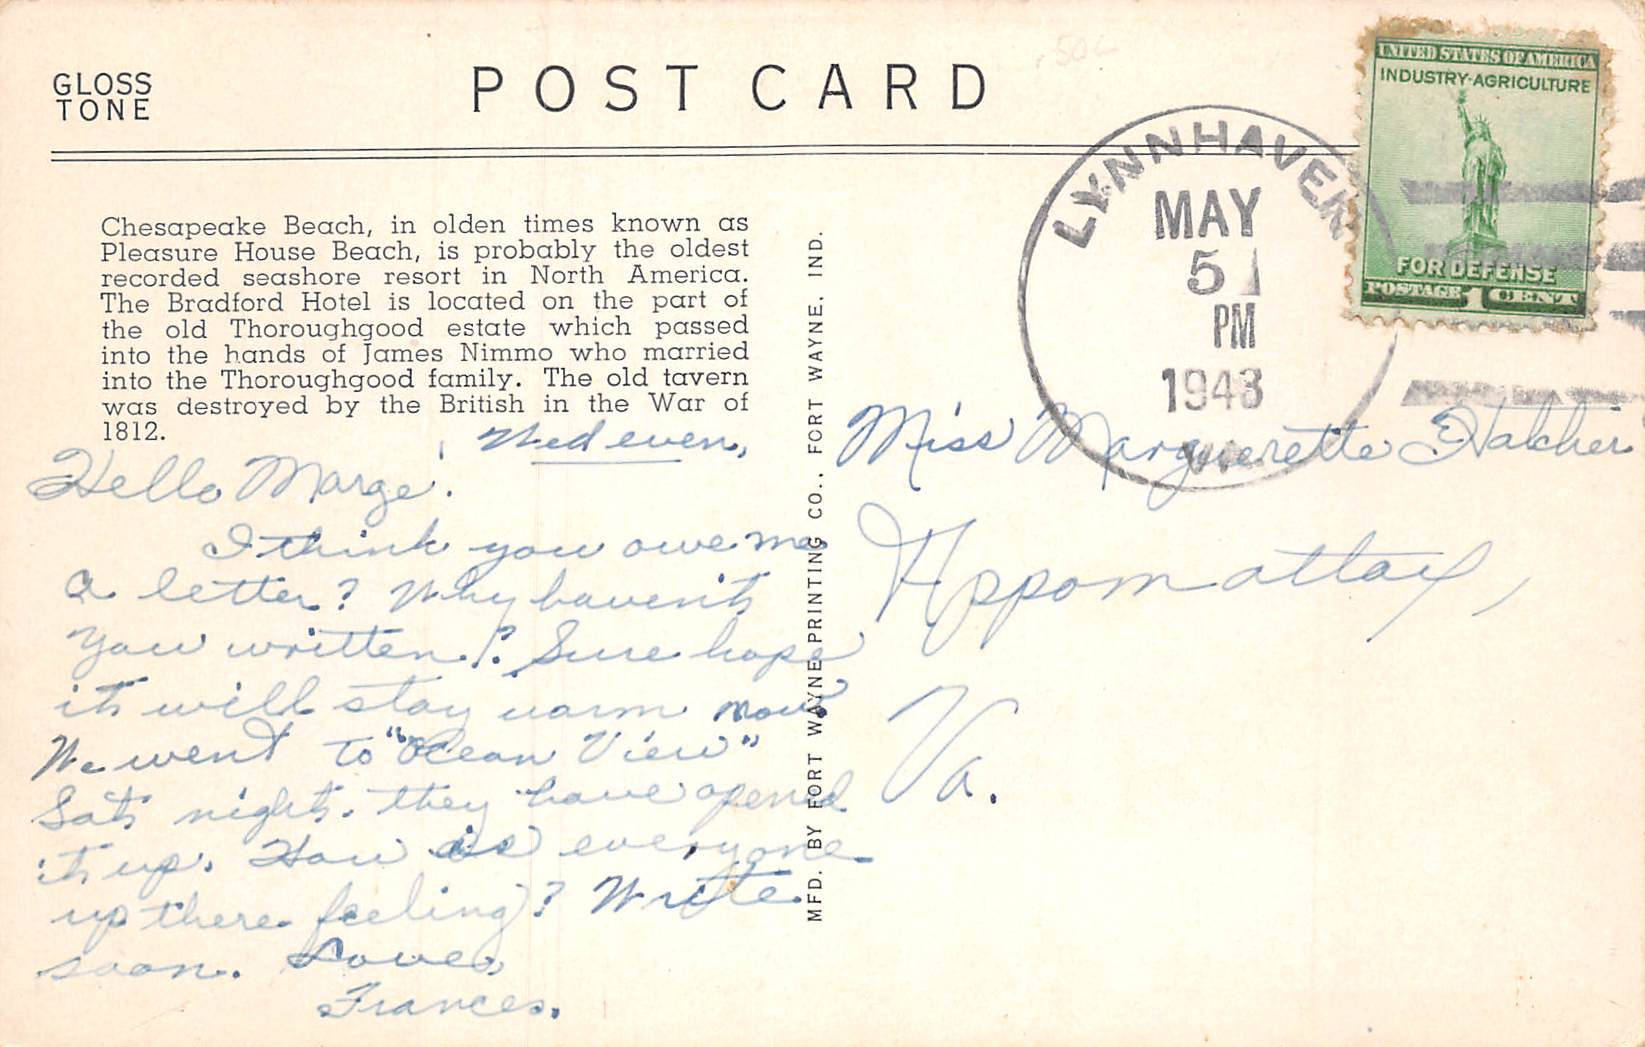 GLOSS
TONE
POST CARD
.50c
UNITED STATES OF AMERICA
INDUSTRY-AGRICULTURE
FOR DEFENSE
POSTAGE 1 CENT
LYNNHAVEN
MAY
5
PM
1943
VA.
Chesapeake Beach, in olden times known as
Pleasure House Beach, is probably the oldest
recorded seashore resort in North America.
The Bradford Hotel is located on the part of
the old Thoroughgood estate which passed
into the hands of James Nimmo who married
into the Thoroughgood family. The old tavern
was destroyed by the British in the War of
1812.
Wed even,
Hello Marge!
I think you owe me
a letter? Why haven't
you written? Sure hope
it will stay warm now.
We went to "Ocean View"
Sat night. they have opened
it up. How is everyone
up there feeling? Write
soon. Love,
Frances.
MFD. BY FORT WAYNE PRINTING CO., FORT WAYNE, IND.
Miss Marguerette
Appomattox,
Va.